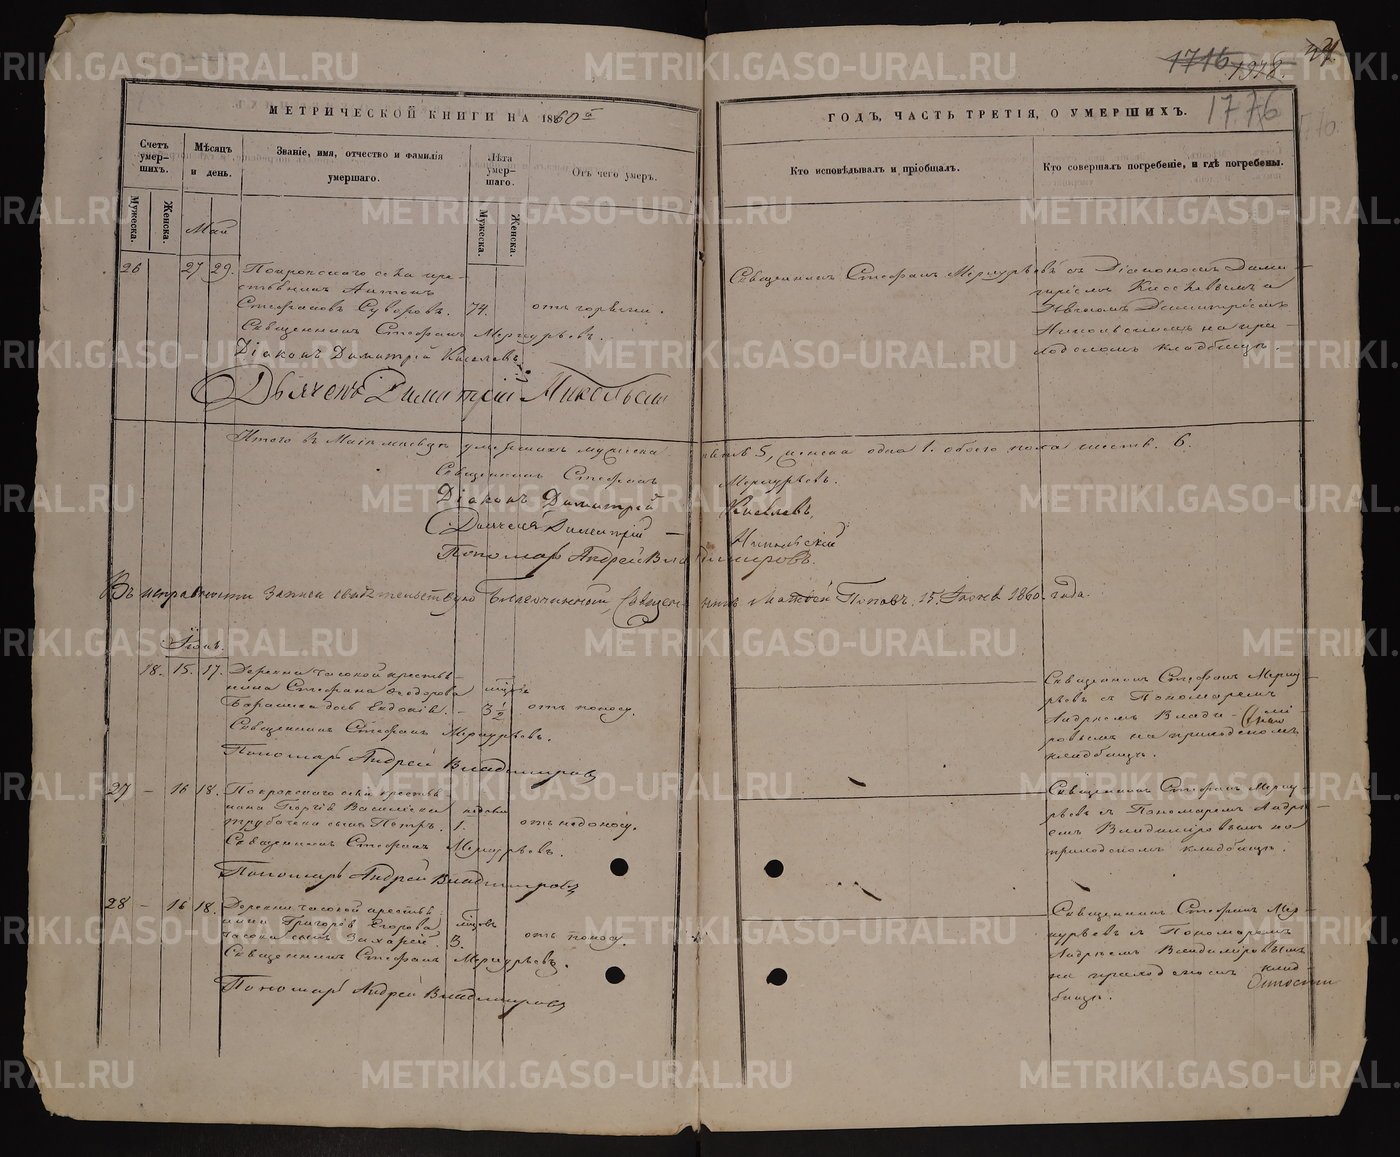 1716 1978. 
1776
МЕТРИЧЕСКОЙ КНИГИ НА 1860й
ГОДЪ, ЧАСТЬ ТРЕТІЯ, О УМЕРШИХЪ.
Счетъ умер-шихъ.
Мужеска.
Женска.
Мѣсяцъ и день.
Званіе, имя, отчество и фамилія умершаго.
Лѣта умер-шаго.
Мужеска.
Женска.
Отъ чего умеръ.
Кто исповѣдывалъ и пріобщалъ.
Кто совершалъ погребеніе, и гдѣ погребены.
Май
26 27 29. Покровскаго села кре-
стьянинъ Антонъ
Стефановъ Суворовъ. 74. отъ горячки.
Священникъ Стефанъ Меркурьевъ.
Діаконъ Димитрій Киселевъ
Дьячекъ Димитрій Никольскій
Священникъ Стефанъ Меркурьевъ съ Діакономъ Дими-
тріемъ Киселевымъ и
Дьячкомъ Димитріемъ
Никольскимъ на при-
ходскомъ кладбищѣ.
Итого въ Маѣ мѣсяцѣ умершихъ мужеска пять 5, женска одна 1. обоего пола шесть. 6.
Священникъ Стефанъ Меркурьевъ.
Діаконъ Димитрій Киселевъ
Дьячекъ Димитрій Никольскій
Пономарь Андрей Владимировъ.
Въ исправности записи свидѣтельствую Благочинный Священникъ Матѳей Поповъ. 15. Іюня 1860. года.
Іюнь.
18. 15. 17. Деревни Часовой крестья-
нина Стефана Ѳеодорова
дочь Евдокія. 3 1/2 отъ поносу.
Священникъ Стефанъ Меркурьевъ.
Пономарь Андрей Владимировъ
Священникъ Стефанъ Мерку-
рьевъ съ Пономаремъ
Андреемъ Влади-
ровымъ на приходскомъ
кладбищѣ.
27 - 16 18. Покровскаго села крестья-
нина Георгія Васильева недѣли
сынъ Петръ. 1. отъ недоносу.
Священникъ Стефанъ Меркурьевъ.
Пономарь Андрей Владимировъ
Священникъ Стефанъ Мерку-
рьевъ съ Пономаремъ Андре-
емъ Владиміровымъ на
приходскомъ кладбищѣ.
28 - 16 18. Деревни Часовой крестья-
нина Григорія Егорова
сынъ Захарій. 3. отъ поносу.
Священникъ Стефанъ Меркурьевъ.
Пономарь Андрей Владимировъ
Священникъ Стефанъ Мер-
курьевъ съ Пономаремъ
Андреемъ Владиміровымъ
на приходскомъ клад-
бищѣ.
METRIKI.GASO-URAL.RU